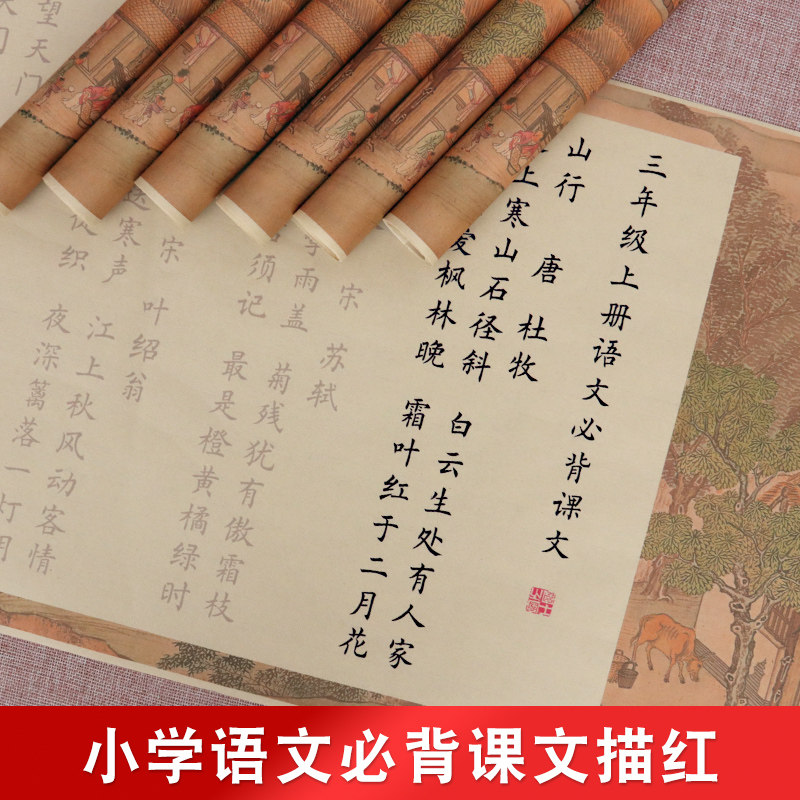 三年级上册语文必背课文
山行 唐 杜牧
上寒山石径斜 白云生处有人家
爱枫林晚 霜叶红于二月花
宋 苏轼
雨盖 菊残犹有傲霜枝
须记 最是橙黄橘绿时
宋 叶绍翁
寒声 江上秋风动客情
织 夜深篱落一灯
望天门
天门
小学语文必背课文描红